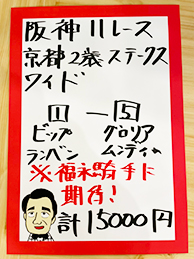 阪神11レース
京神2歳ステークス
ワイド
1 — 5
ビップ グロリア
ランベン ムンディ
※福永騎手に
期待!
計15000円